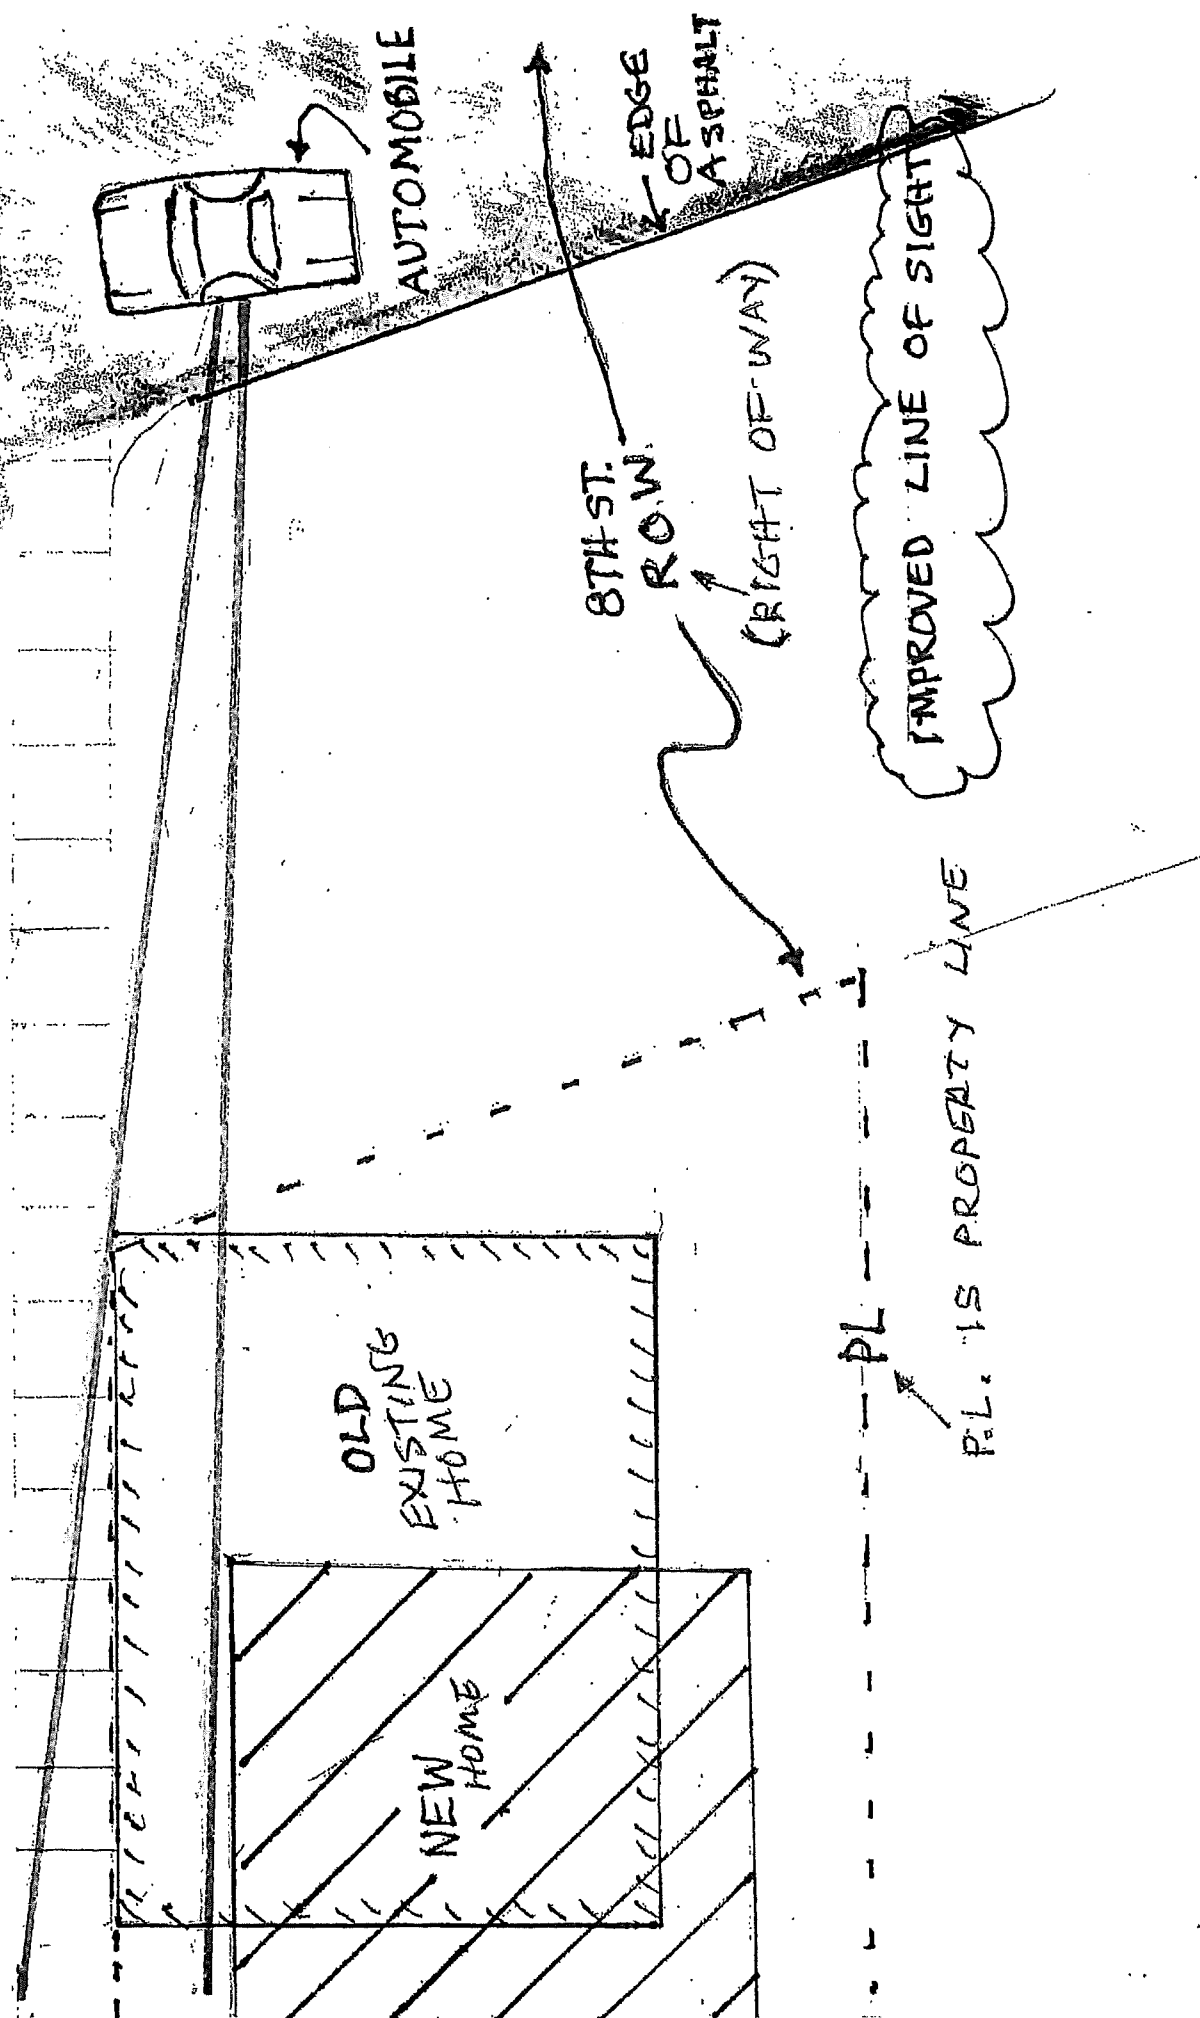 AUTOMOBILE
EDGE
OF
ASPHALT
8TH ST.
R.O.W.
(RIGHT OF WAY)
IMPROVED LINE OF SIGHT
OLD
EXISTING
HOME
NEW
HOME
PL
P.L. IS PROPERTY LINE